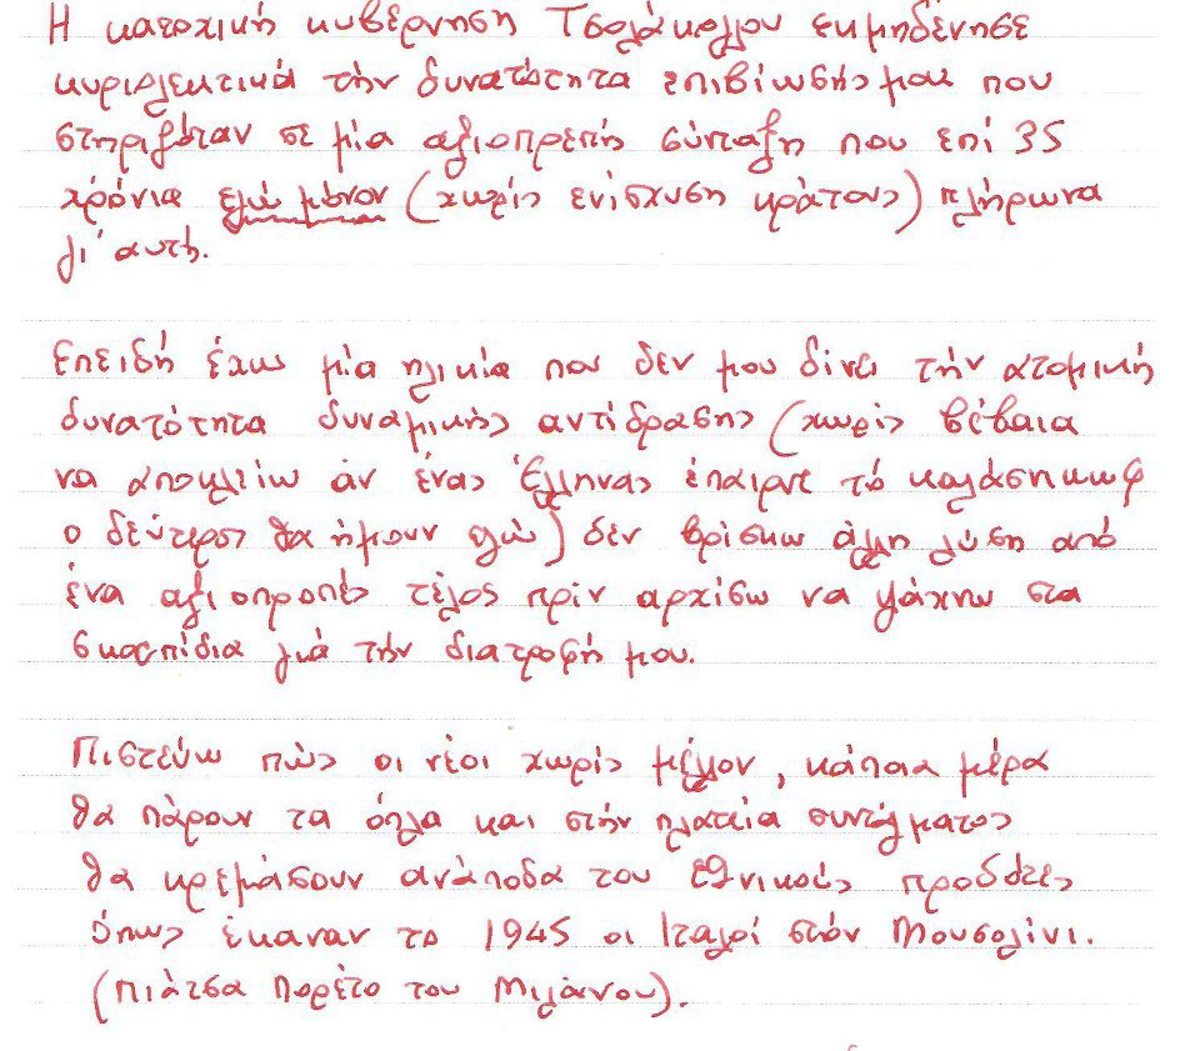 Η κατοχική κυβέρνηση Τσολάκογλου εκμηδένησε
κυριολεκτικά την δυνατότητα επιβίωσής μου που
στηριζόταν σε μία αξιοπρεπή σύνταξη που επί 35
χρόνια εγώ μόνον (χωρίς ενίσχυση κράτους) πλήρωνα
γι' αυτή.
Επειδή έχω μία ηλικία που δεν μου δίνει την ατομική
δυνατότητα δυναμικής αντίδρασης (χωρίς βέβαια
να αποκλείω άν ένας Έλληνας έπαιρνε το καλάσνικωφ
ο δεύτερος θα ήμουν εγώ) δεν βρίσκω άλλη λύση από
ένα αξιοπρεπές τέλος πρίν αρχίσω να ψάχνω στα
σκουπίδια γιά την διατροφή μου.
Πιστεύω πώς οι νέοι χωρίς μέλλον, κάποια μέρα
θα πάρουν τα όπλα και στην πλατεία συντάγματος
θα κρεμάσουν ανάποδα του εθνικούς προδότες
όπως έκαναν το 1945 οι Ιταλοί στόν Μουσολίνι.
(Πιάτσα Πορέτο του Μιλάνου).